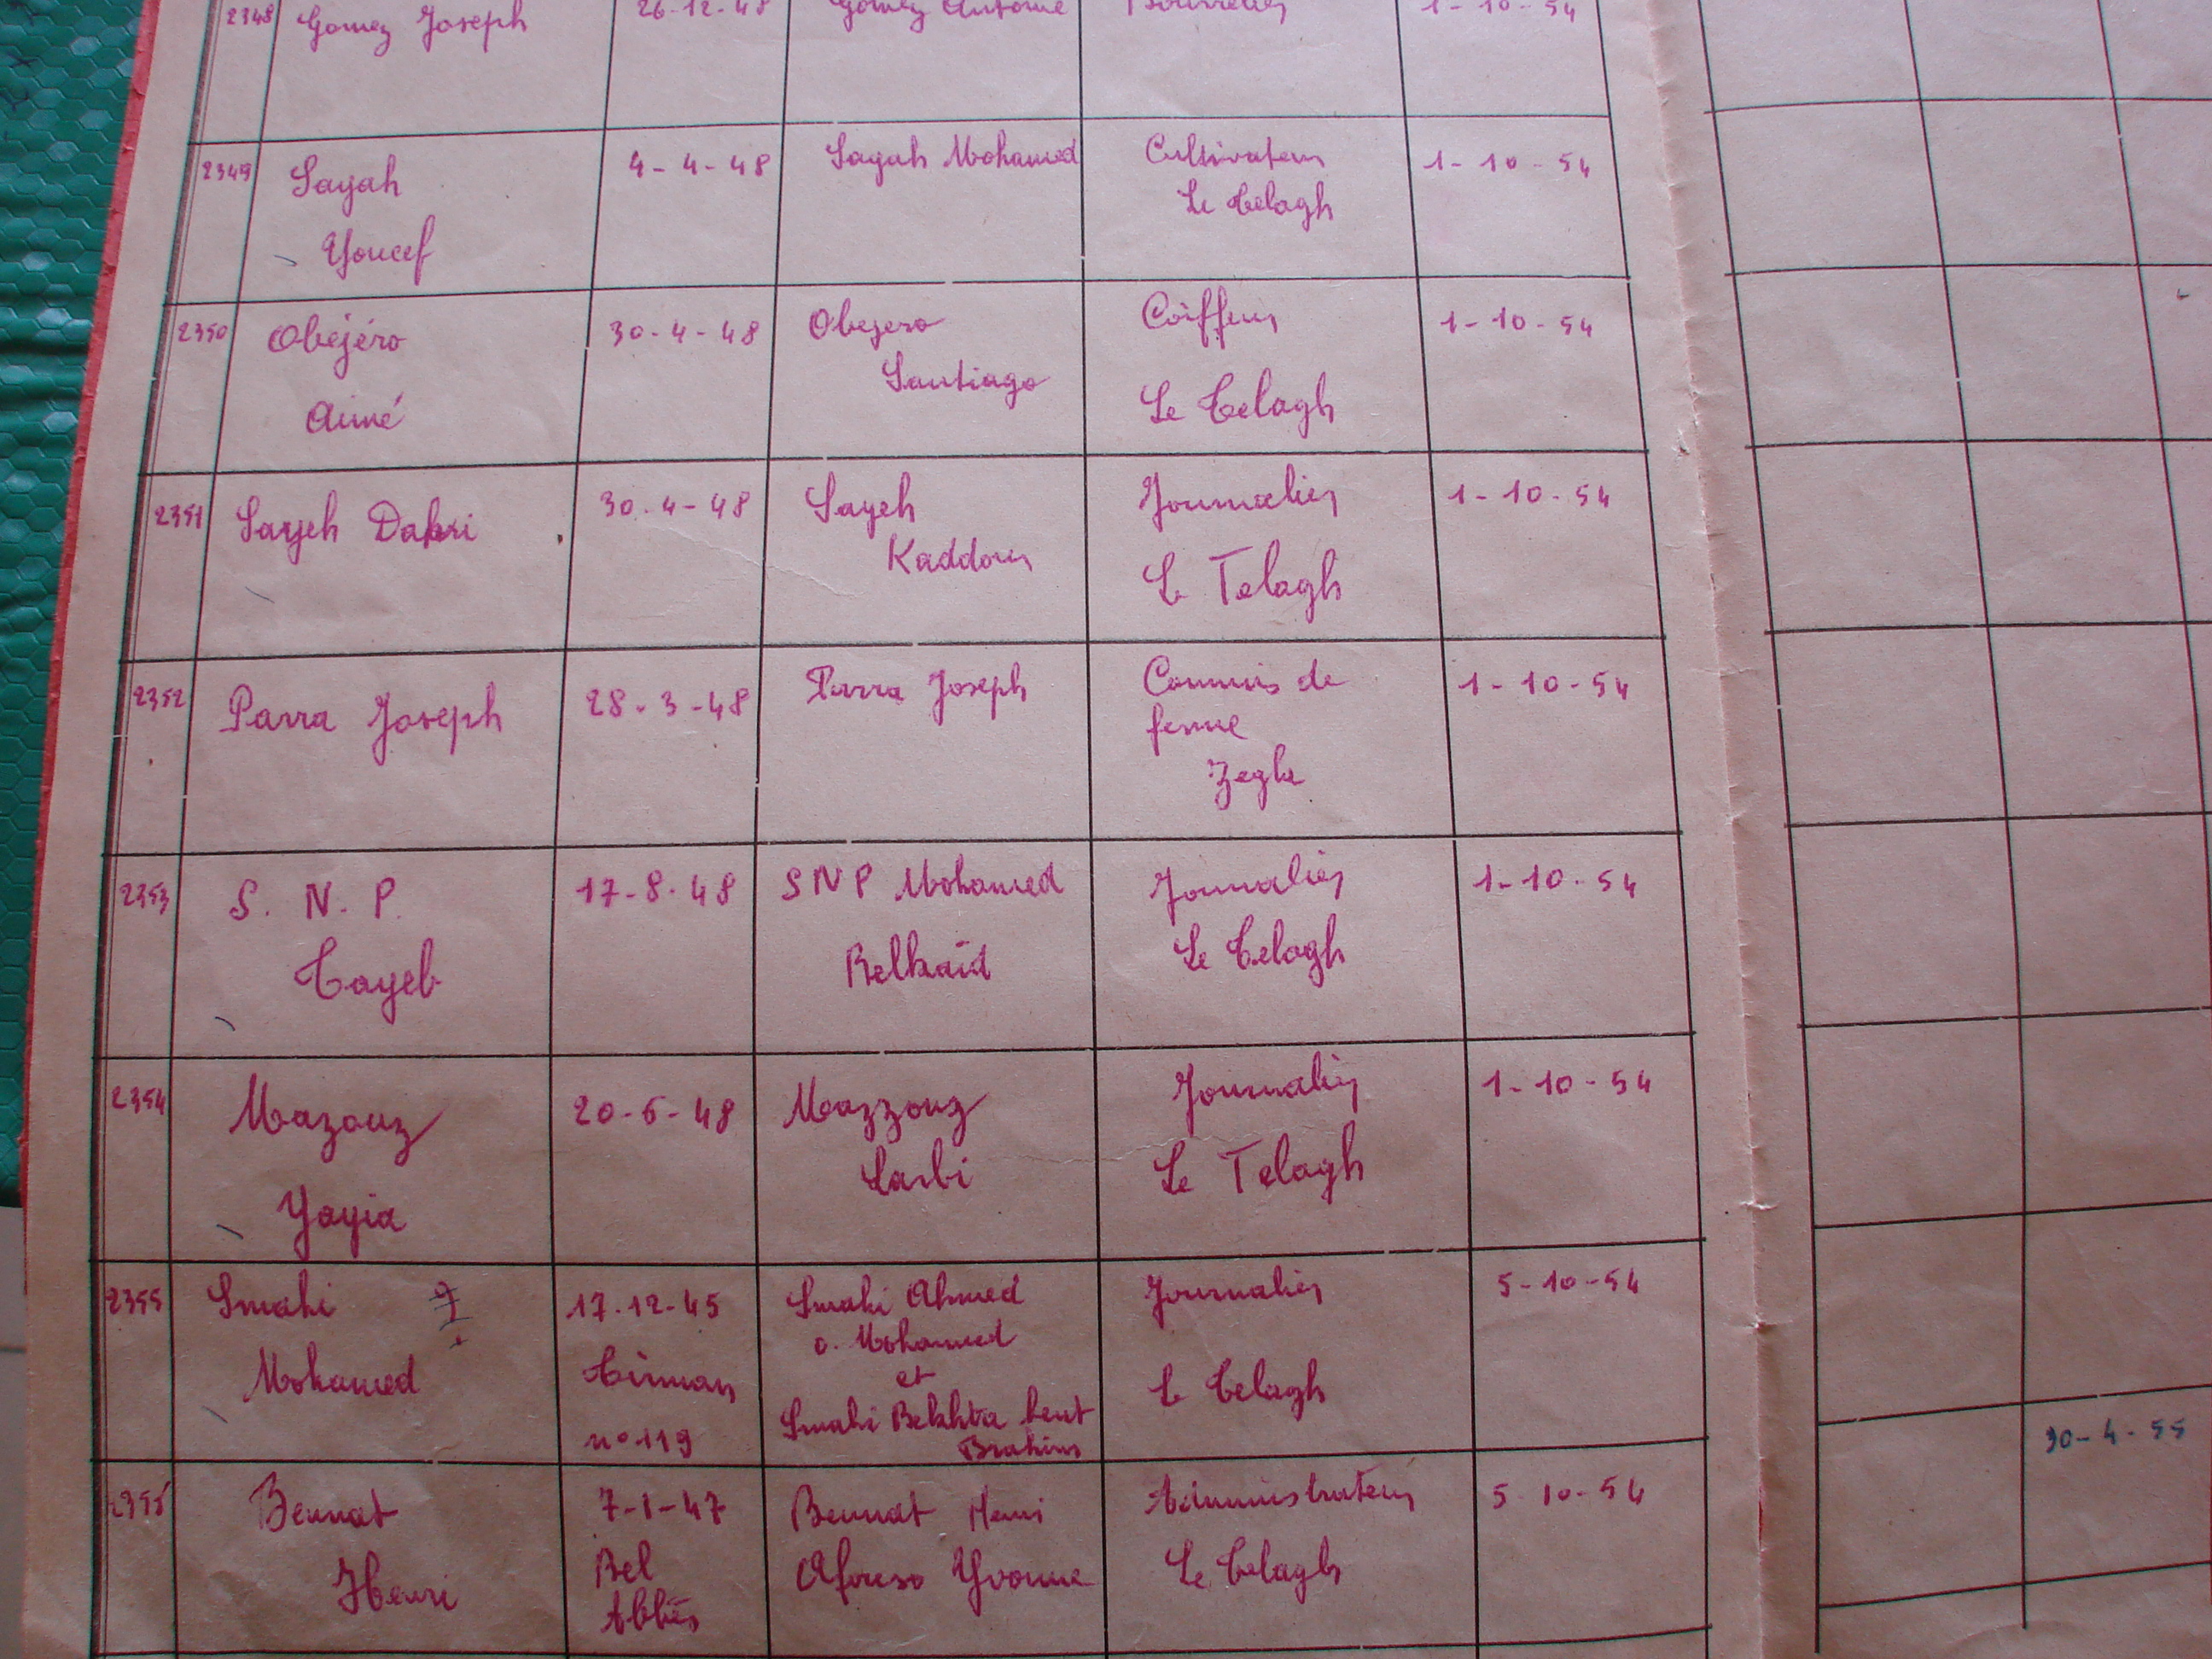 2348 Gomez Joseph 26-12-48 Gomez Antoine Bourrelier 1-10-54
2349 Sayah 4-4-48 Sayah Mohamed Cultivateur 1-10-54
Youcef Le Telagh
2350 Obéjéro 30-4-48 Obejero Coiffeur 1-10-54
Aimé Santiago Le Telagh
2351 Sayeh Dahri 30.4-48 Sayeh Journalier 1-10-54
Kaddour Le Telagh
2352 Parra Joseph 28-3-48 Parra Joseph Commis de 1-10-54
ferme
Zegla
2353 S. N. P. 17-8-48 SNP Mohamed Journalier 1-10-54
Tayeb Belkaïd Le Telagh
2354 Mazouz 20-6-48 Mazzouz Journalier 1-10-54
Yayia Larbi Le Telagh
2355 Smahi 17.12-45 Smahi Ahmed Journalier 5-10-54
o. Mohamed
Mohamed et Le Telagh
nº 119 Smahi Bekhta bent
Brahim
30-4-55
2355 Bennat 7-1-47 Bennat Henri Administrateur 5-10-54
Henri Bel Yvonne Le Telagh
Abbès